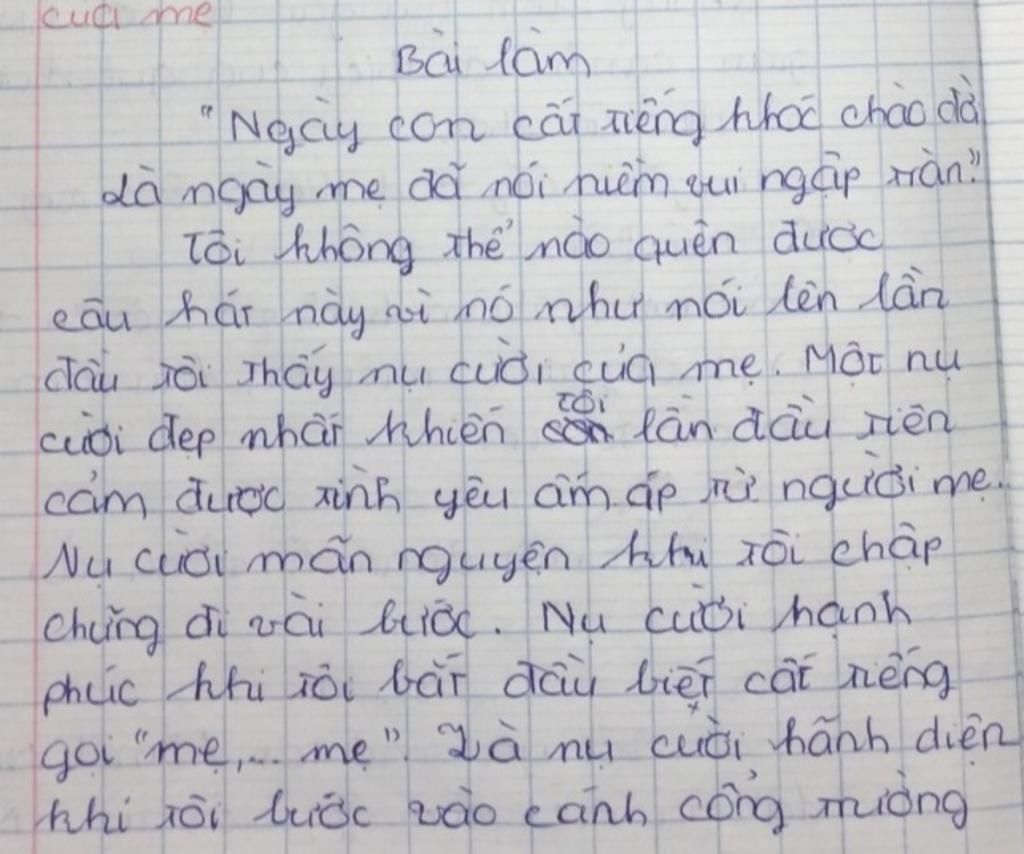 của mẹ
Bài làm
"Ngày con cất tiếng khóc chào đời
Là ngày mẹ đã nói niềm vui ngập tràn."
Tôi không thể nào quên được
câu hát này vì nó như nói lên lần
đầu tôi thấy nụ cười của mẹ. Một nụ
cười đẹp nhất khiến tôi lần đầu tiên
cảm được tình yêu ấm áp từ người mẹ.
Nụ cười mãn nguyện khi tôi chập
chững đi vài bước. Nụ cười hạnh
phúc khi tôi bắt đầu biết cất tiếng
gọi "mẹ,... mẹ". Là nụ cười hãnh diện
khi tôi bước vào cánh cổng trường